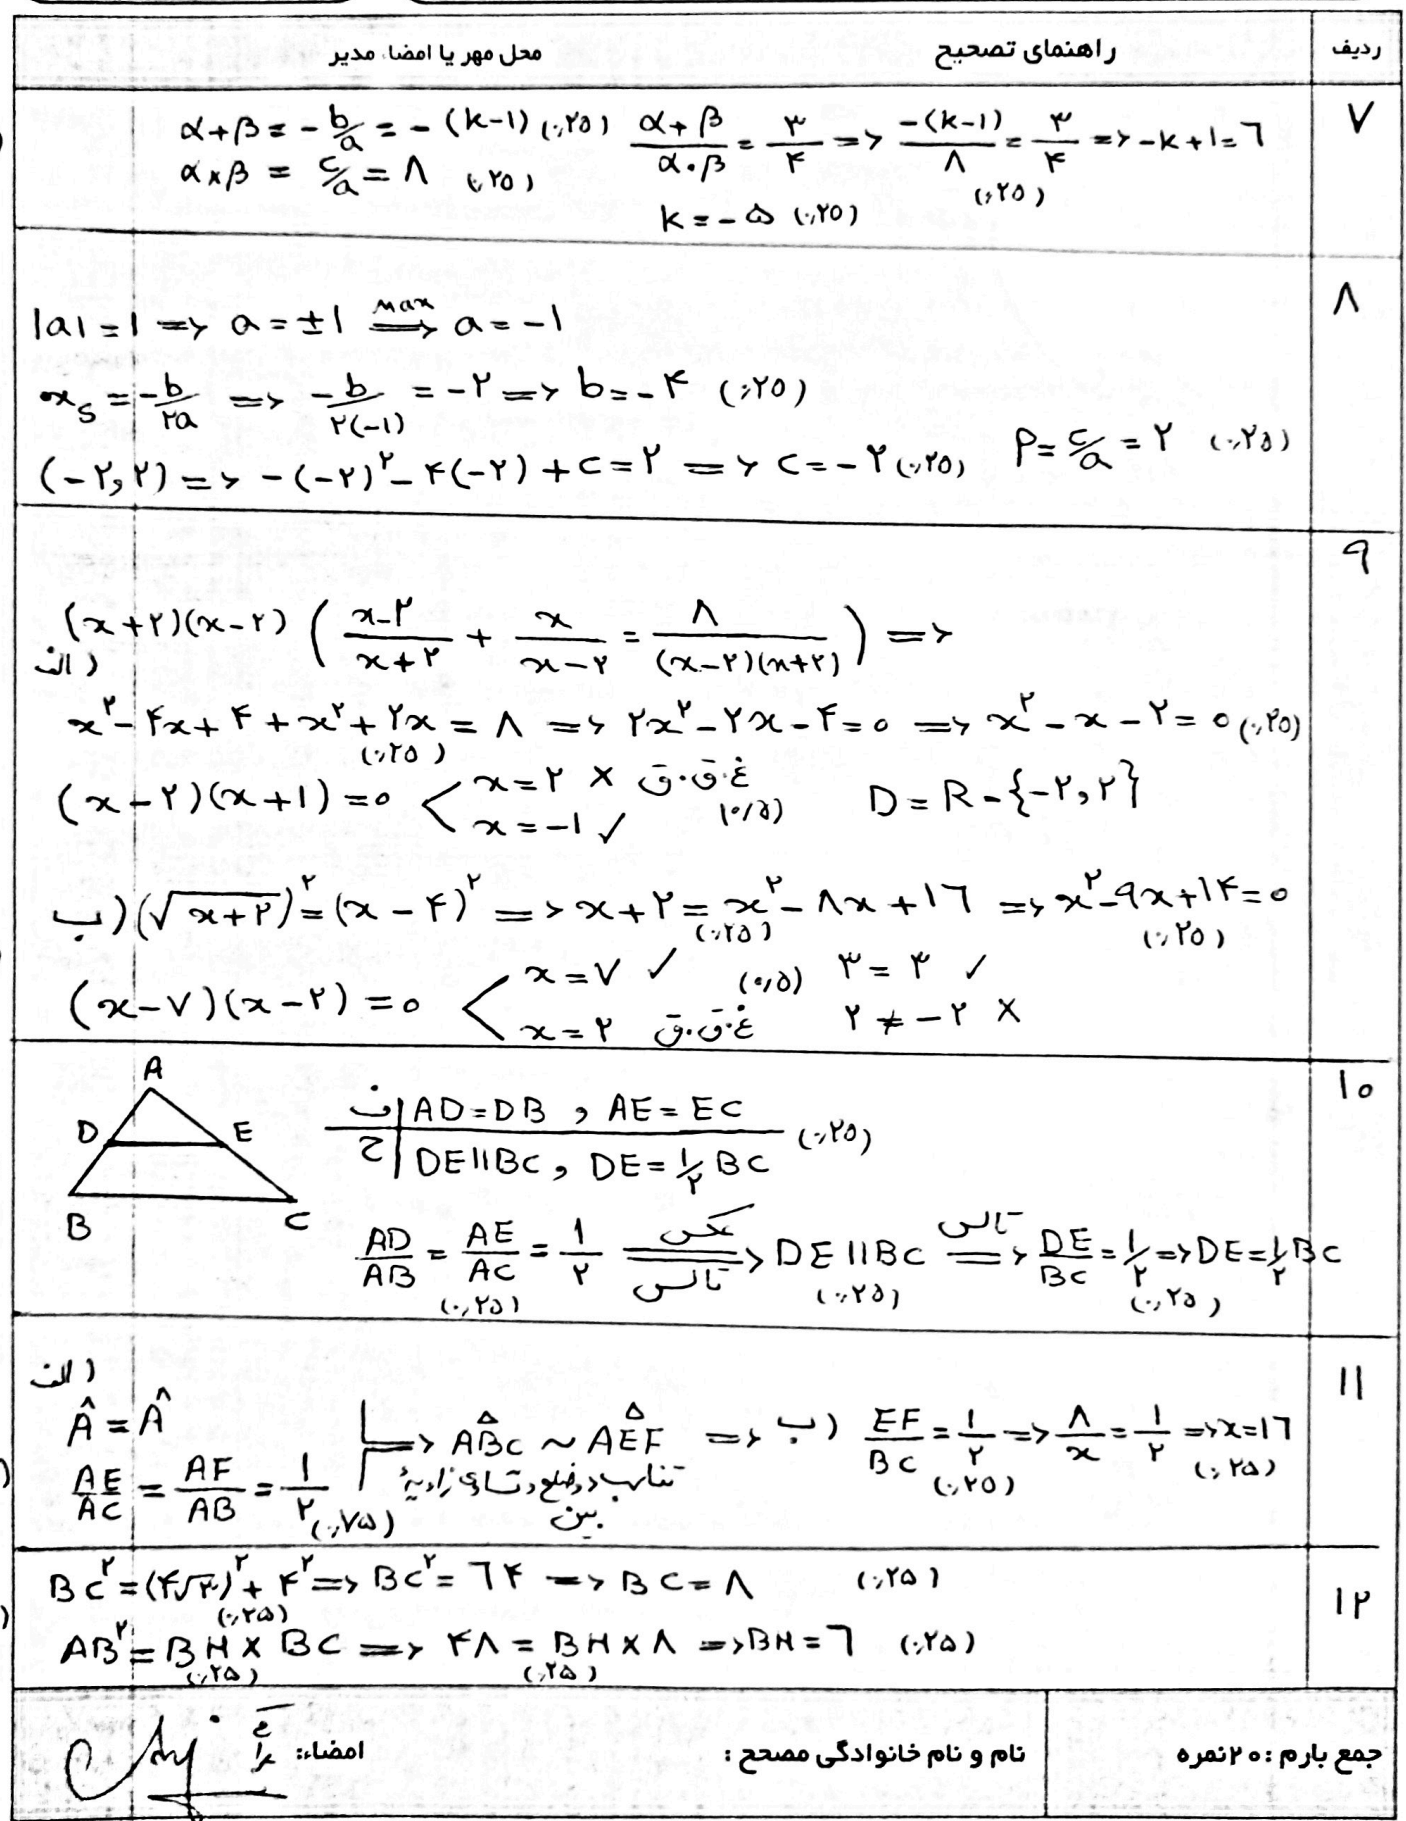 ردیف راهنمای تصحیح محل مهر یا امضاء مدیر
۷
α+β = -b/a = -(k-1) (۰,۲۵) (α+β)/(α•β) = ۳/۴ => -(k-1)/۸ = ۳/۴ => -k+1=۶
α×β = c/a = ۸ (۰,۲۵) (۰,۲۵)
k = -۵ (۰,۲۵)
۸
|a|=1 => a=±1 =Max=> a=-1
x_S = -b/۲a => -b/۲(-1) = -۲ => b=-۴ (۰,۲۵)
(-۲,۲) => -(-۲)^۲ -۴(-۲)+c=۲ => c=-۲ (۰,۲۵) P = c/a = ۲ (۰,۲۵)
۹
الف) (x+۲)(x-۲) ( (x-۲)/(x+۲) + x/(x-۲) = ۸/((x-۲)(x+۲)) ) =>
x^۲-۴x+۴+x^۲+۲x=۸ => ۲x^۲-۲x-۴=۰ => x^۲-x-۲=۰ (۰,۲۵)
(۰,۲۵)
(x-۲)(x+1)=۰ < x=۲ × غ.ق.ق D=R-{-۲,۲}
x=-1 ✓ (۰/۵)
ب) (√(x+۲))^۲ = (x-۴)^۲ => x+۲=x^۲-۸x+1۶ => x^۲-۹x+1۴=۰
(۰,۲۵) (۰,۲۵)
(x-۷)(x-۲)=۰ < x=۷ ✓ (۰/۵) ۳=۳ ✓
x=۲ غ.ق.ق ۲≠-۲ ×
۱۰
A
D E
B C
ف | AD=DB , AE=EC
ح | DE||BC , DE=1/۲ BC (۰,۲۵)
AD/AB = AE/AC = 1/۲ =عکس تالس=> DE||BC =تالس=> DE/BC = 1/۲ => DE=1/۲ BC
(۰,۲۵) (۰,۲۵) (۰,۲۵)
۱۱
الف)
Â=Â
AE/AC = AF/AB = 1/۲ (۰,۷۵) => ABC ~ AEF => ب) EF/BC = 1/۲ => ۸/x = 1/۲ => x=1۶
تناسب دو ضلع و تساوی زاویهٔ بین (۰,۲۵) (۰,۲۵)
۱۲
BC^۲=(۴√۳)^۲+۴^۲ => BC^۲=۶۴ => BC=۸ (۰,۲۵)
(۰,۲۵)
AB^۲=BH×BC => ۴۸=BH×۸ => BH=۶ (۰,۲۵)
(۰,۲۵) (۰,۲۵)
جمع بارم : ۲۰نمره نام و نام خانوادگی مصحح : امضاء: